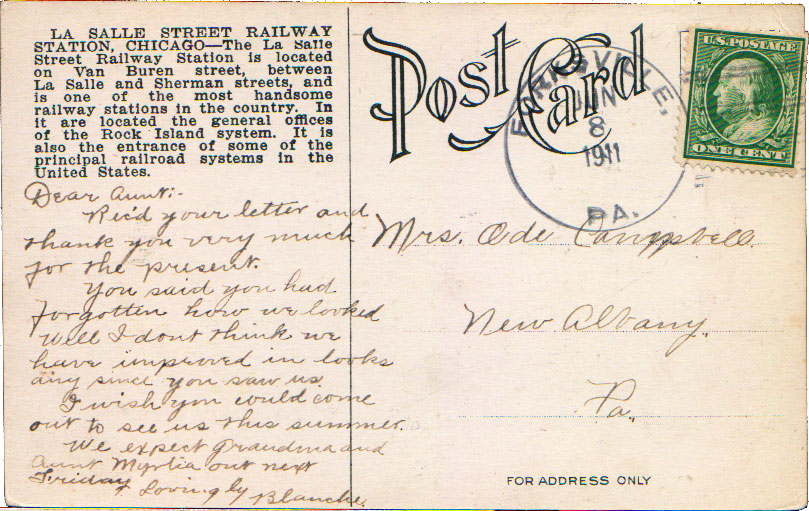 LA SALLE STREET RAILWAY
STATION, CHICAGO—The La Salle
Street Railway Station is located
on Van Buren street, between
La Salle and Sherman streets, and
is one of the most handsome
railway stations in the country. In
it are located the general offices
of the Rock Island system. It is
also the entrance of some of the
principal railroad systems in the
United States.
Dear Aunt:-
Rec'd your letter and
thank you very much
for the present.
You said you had
forgotten how we looked
Well I dont think we
have improved in looks
any since you saw us.
I wish you could come
out to see us this summer.
We expect grandma and
Aunt Myrtia out next
Friday
Lovingly Blanche.
Post Card
FORKSVILLE,
JUN
8
1911
PA.
U.S. POSTAGE
ONE CENT
Mrs. Ode Campbell
New Albany,
Pa.
FOR ADDRESS ONLY